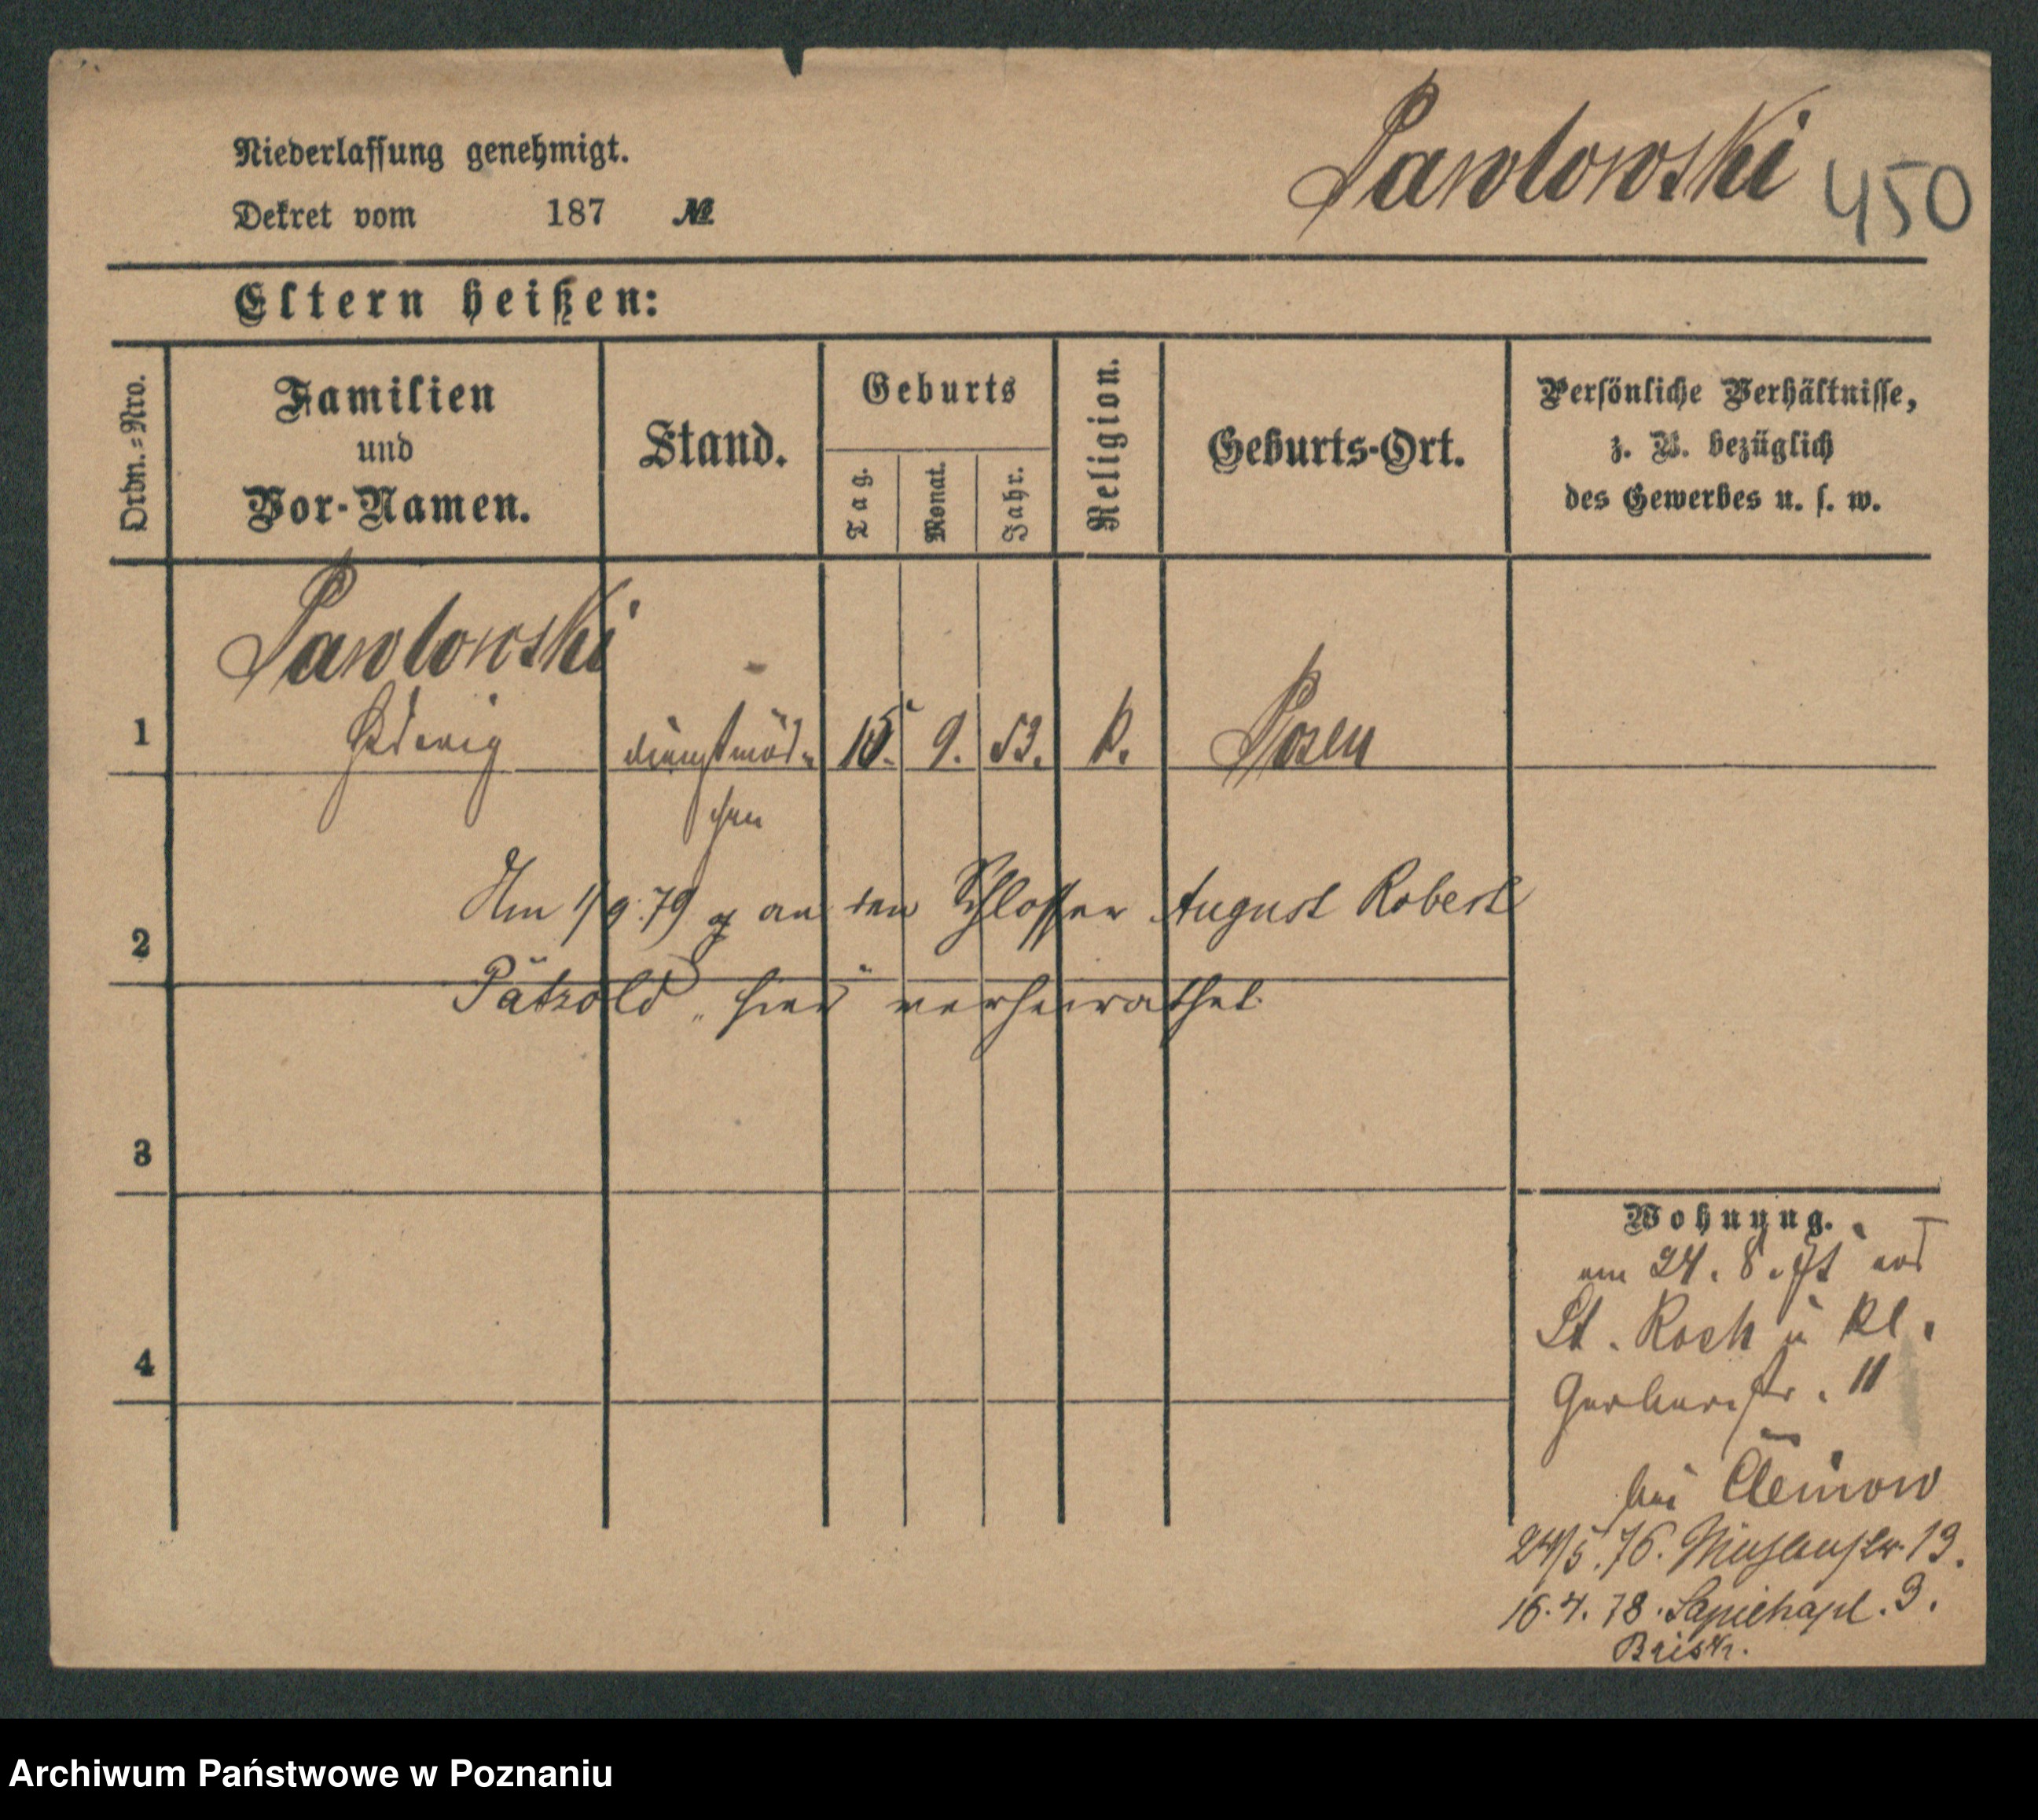 Pawlowski 450
Niederlassung genehmigt.
Dekret vom 187 №
Eltern heißen:
Ordn.=Nro.
Familien
und
Vor-Namen.
Stand.
Geburts
Tag.
Monat.
Jahr.
Religion.
Geburts-Ort.
Persönliche Verhältnisse,
z. B. bezüglich
des Gewerbes u. s. w.
Pawlowski
1 Hedwig dienstmäd= 15. 9. 53. k. Posen
chen
Am 1/9.79 an den Schlosser August Robert
2
Pätzold hier verheirathet.
3
4
Wohnung.
am 24. 8. aus
St. Roch u Kl.
Gerberstr. 11
bei
24/5.76. 13.
16.4.78. Sapiehapl. 3.